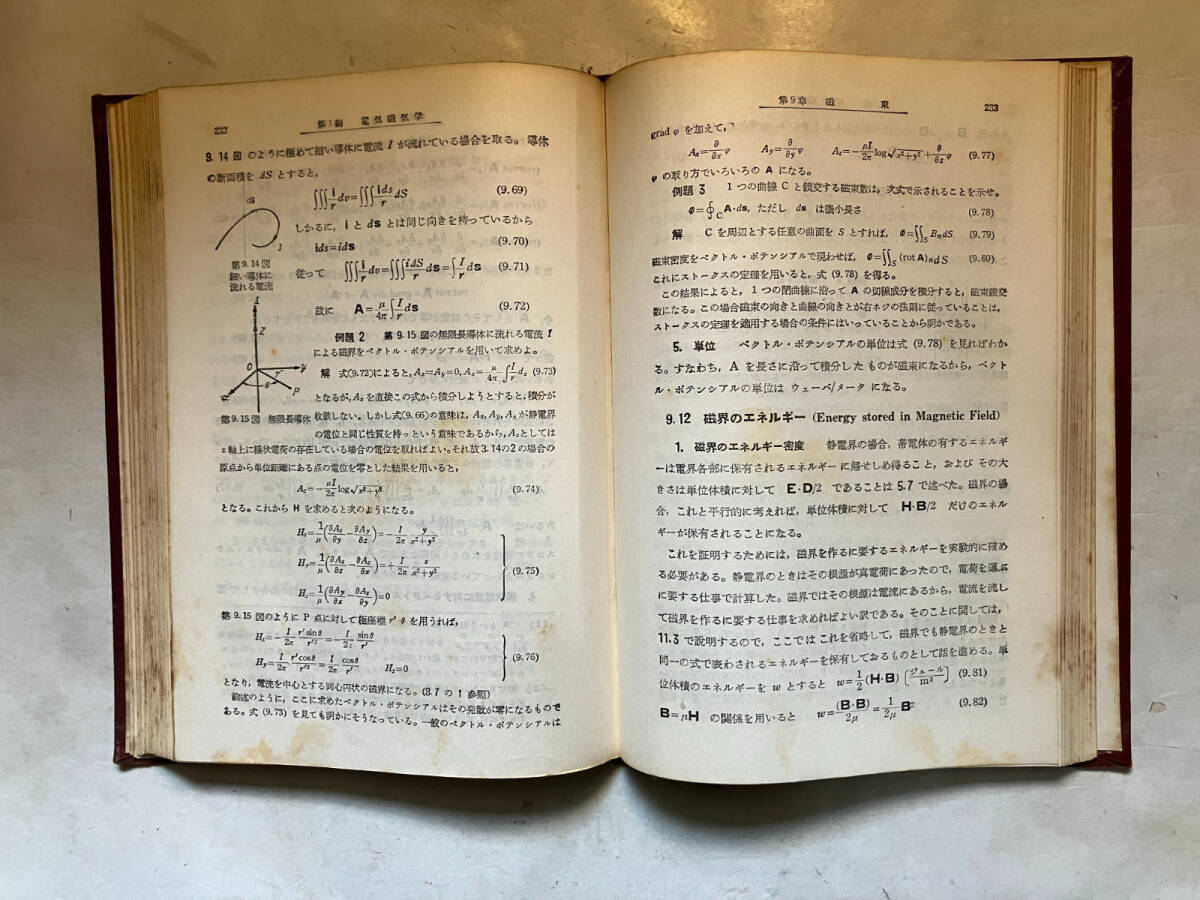 232
第1編 電気磁気学
9.14図のように極めて細い導体に電流 I が流れている場合を取る。導体
の断面積を dS とすると,
∭ i/r dv=∭ i ds/r dS (9.69)
しかるに, i と ds とは同じ向きを持っているから
ids=ids (9.70)
従って ∭ i/r dv=∭ idS/r ds=∫ I/r ds (9.71)
故に A=μ/4π ∫ I/r ds (9.72)
ds
I
第9.14図
細い導体に
流れる電流
I
z
O
y
x
θ
r'
P
第9.15図 無限長導体
例題2 第9.15図の無限長導体に流れる電流 I
による磁界をベクトル・ポテンシャルを用いて求めよ。
解 式(9.72)によると, Ax=Ay=0, Az=μ/4π ∫ I/r dz (9.73)
となるが, Az を直接この式から積分しようとすると, 積分が
収斂しない。しかし式(9.66)の意味は, Ax, Ay, Az が静電界
の電位と同じ性質を持っという意味であるから, Az としては
z軸上に線状電荷の存在している場合の電位を取ればよい。それ故3.14の2の場合の
原点から単位距離にある点の電位を零とした結果を用いると,
Az=−μI/2π log√x²+y² (9.74)
となる。これから H を求めると次のようになる。
Hx=1/μ(∂Az/∂y−∂Ay/∂z)=−I/2π y/x²+y²
Hy=1/μ(∂Ax/∂z−∂Az/∂x)=+I/2π x/x²+y² (9.75)
Hz=1/μ(∂Ay/∂x−∂Ax/∂y)=0
第9.15図のように P 点に対して極座標 r' θ を用うれば,
Hx=−I/2π r'sinθ/r'²=−I/2π sinθ/r'
Hy=I/2π r'cosθ/r'²=I/2π cosθ/r' Hz=0 (9.76)
となり, 電流を中心とする同心円状の磁界になる。(8.7 の 1 参照)
前述のように, ここに求めたベクトル・ポテンシャルはその発散が零になるもので
ある。式 (9.73) を見ても明かにそうなっている。一般のベクトル・ポテンシャルは
第9章 磁 束
233
grad φ を加えて,
Ax=∂/∂x φ Ay=∂/∂y φ Az=−μI/2π log√x²+y²+∂/∂z φ (9.77)
φ の取り方でいろいろの A になる。
例題3 1つの曲線 C と鎖交する磁束数は, 次式で示されることを示せ。
Φ=∮C A・ds, ただし ds は微小長さ (9.78)
解 C を周辺とする任意の曲面を S とすれば, Φ=∬S BndS (9.79)
磁束密度をベクトル・ポテンシアルで現わせば, Φ=∬S (rot A)n dS (9.80)
これにストークスの定理を用いると, 式 (9.78) を得る。
この結果によると, 1つの閉曲線に沿って A の切線成分を積分すると, 磁束鎖交
数になる。この場合磁束の向きと曲線の向きとが右ネジの法則に従っていることは,
ストークスの定理を適用する場合の条件にはいっていることから明かである。
5. 単位 ベクトル・ポテンシアルの単位は式 (9.78) を見ればわか
る。すなわち, A を長さに沿って積分したものが磁束になるから, ベクト
ル・ポテンシアルの単位は ウェーバ/メータ になる。
9.12 磁界のエネルギー (Energy stored in Magnetic Field)
1. 磁界のエネルギー密度 静電界の場合, 帯電体の有するエネルギ
ーは電界各部に保有されるエネルギーに帰せしめ得ること, および その大
きさは単位体積に対して E・D/2 であることは 5.7 で述べた。磁界の場
合, これと平行的に考えれば, 単位体積に対して H・B/2 だけのエネル
ギーが保有されることになる。
これを証明するためには, 磁界を作るに要するエネルギーを実験的に確め
る必要がある。静電界のときはその根源が真電荷にあったので, 電荷を運ぶ
に要する仕事で計算した。磁界ではその根源は電流にあるから, 電流を流し
て磁界を作るに要する仕事を求めればよい訳である。そのことに関しては,
11.3 で説明するので, ここでは これを省略して, 磁界でも静電界のときと
同一の式で表わされるエネルギーを保有しておるものとして話を進める。単
位体積のエネルギーを w とすると w=1/2(H・B)[ジュール/m³] (9.81)
B=μH の関係を用いると w=(B・B)/2μ=1/2μ B² (9.82)